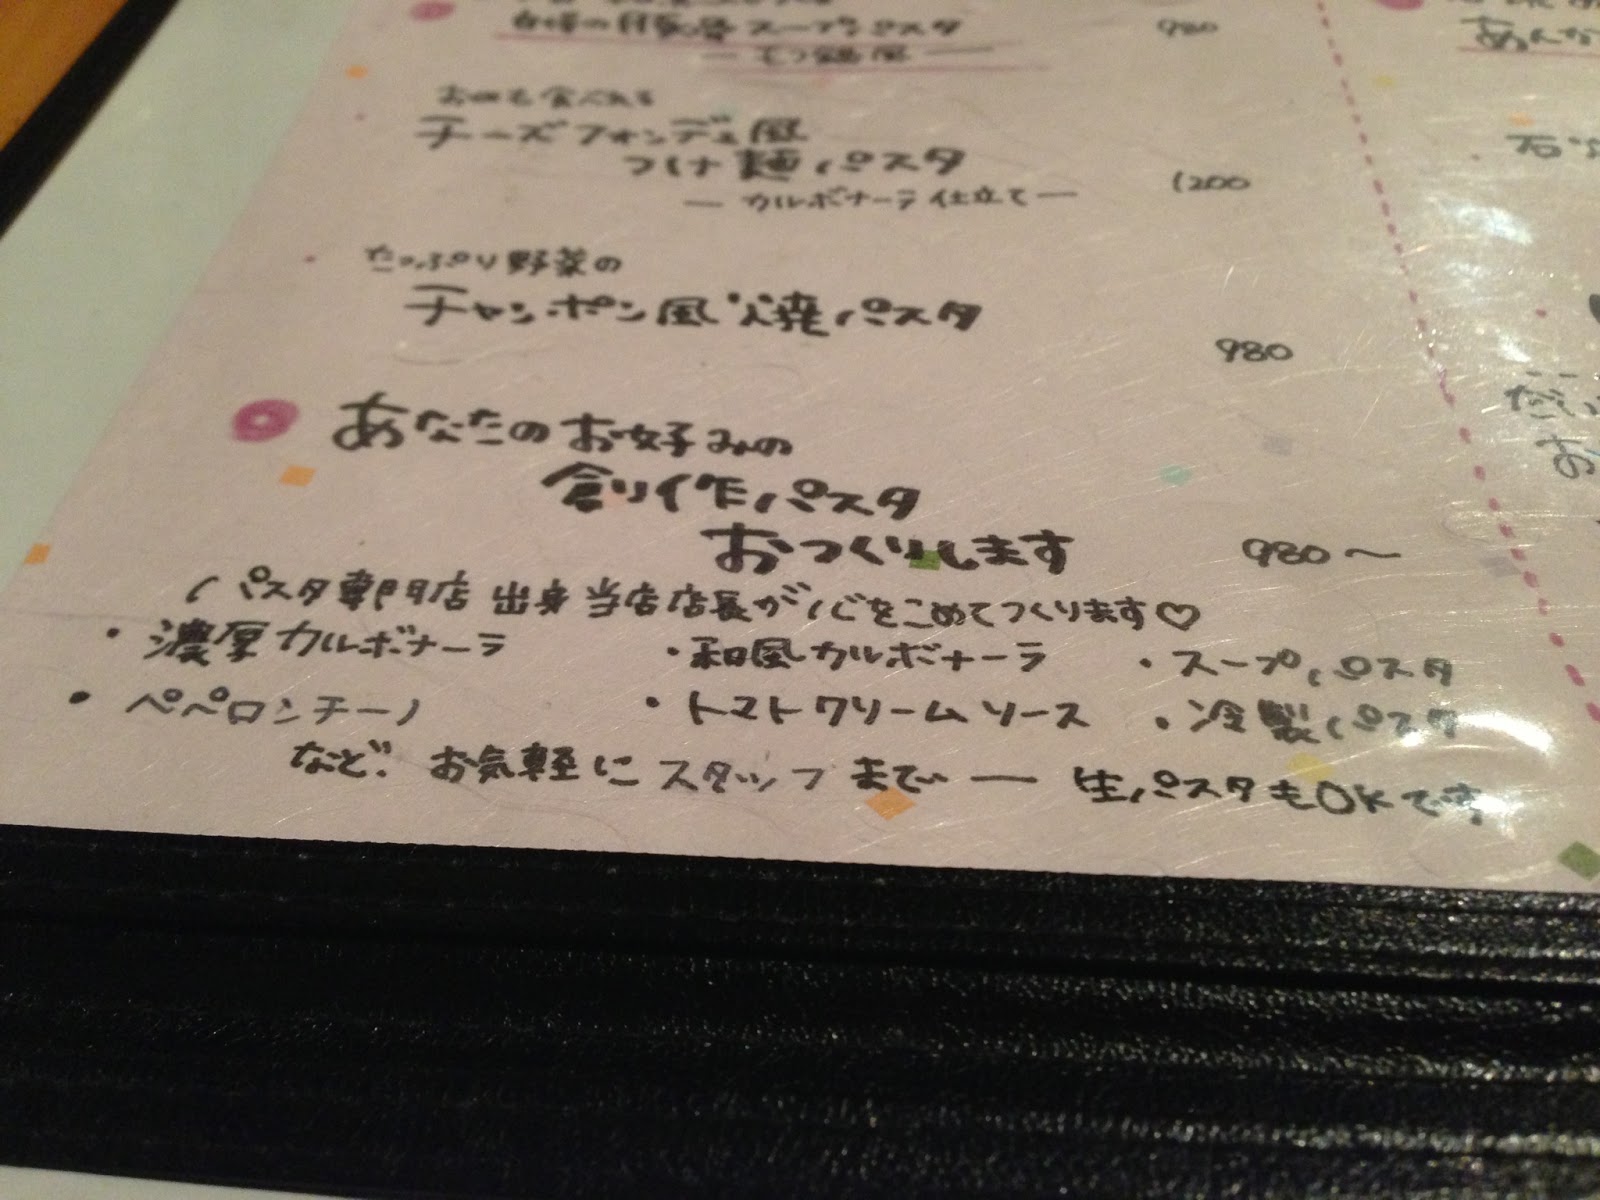 スープパスタ 980
チーズフォンデュ風
つけ麺パスタ
ー カルボナーラ仕立て ー 1200
たっぷり野菜の
チャンポン風焼パスタ
980
あなたのお好みの
創作パスタ
おつくりします 980〜
(パスタ専門店出身当店店長が心をこめてつくります♡
・濃厚カルボナーラ ・和風カルボナーラ ・スープパスタ
・ペペロンチーノ ・トマトクリームソース ・冷製パスタ
など、お気軽にスタッフまで ー 生パスタもOKです